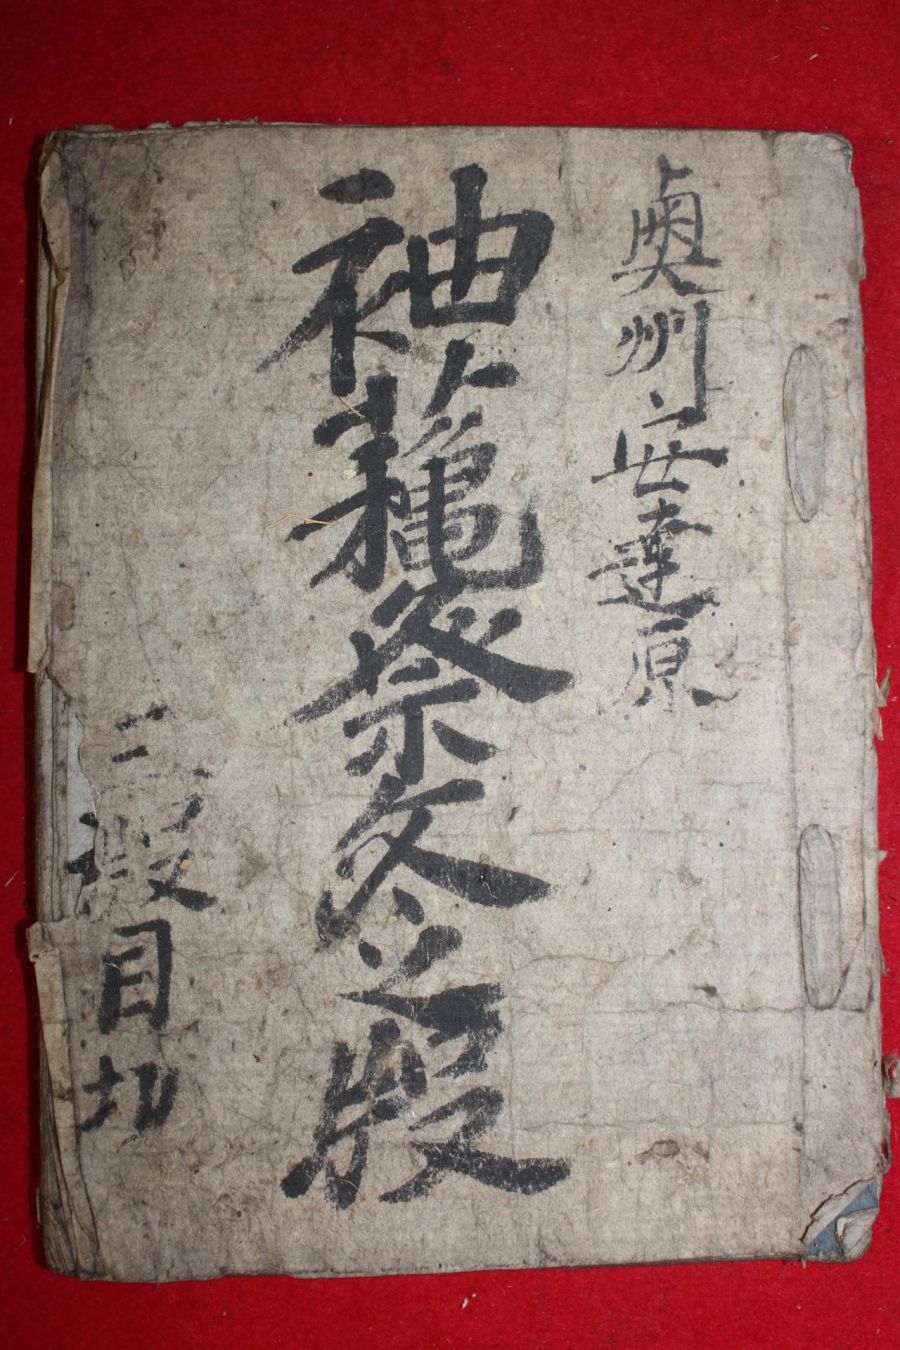 奥州安達原
袖萩祭文之段
三段目切